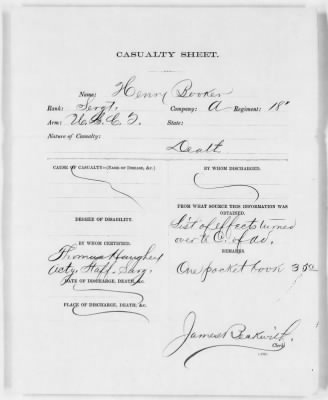 CASUALTY SHEET.
Name: Henry Booker
Rank: Sergt. Company: A Regiment: 18"
Arm: U.S.C.T. State:
Nature of Casualty:
Death
CAUSE OF CASUALTY—(NAME OF DISEASE, &C.)
BY WHOM DISCHARGED.
DEGREE OF DISABILITY.
FROM WHAT SOURCE THIS INFORMATION WAS OBTAINED.
List of effects turned
over to of
BY WHOM CERTIFIED.
Thomas
Actg. Staff Surg.
REMARKS.
One pocket book
DATE OF DISCHARGE, DEATH, &C.
PLACE OF DISCHARGE, DEATH, &C.
James Beakwith
Clerk.